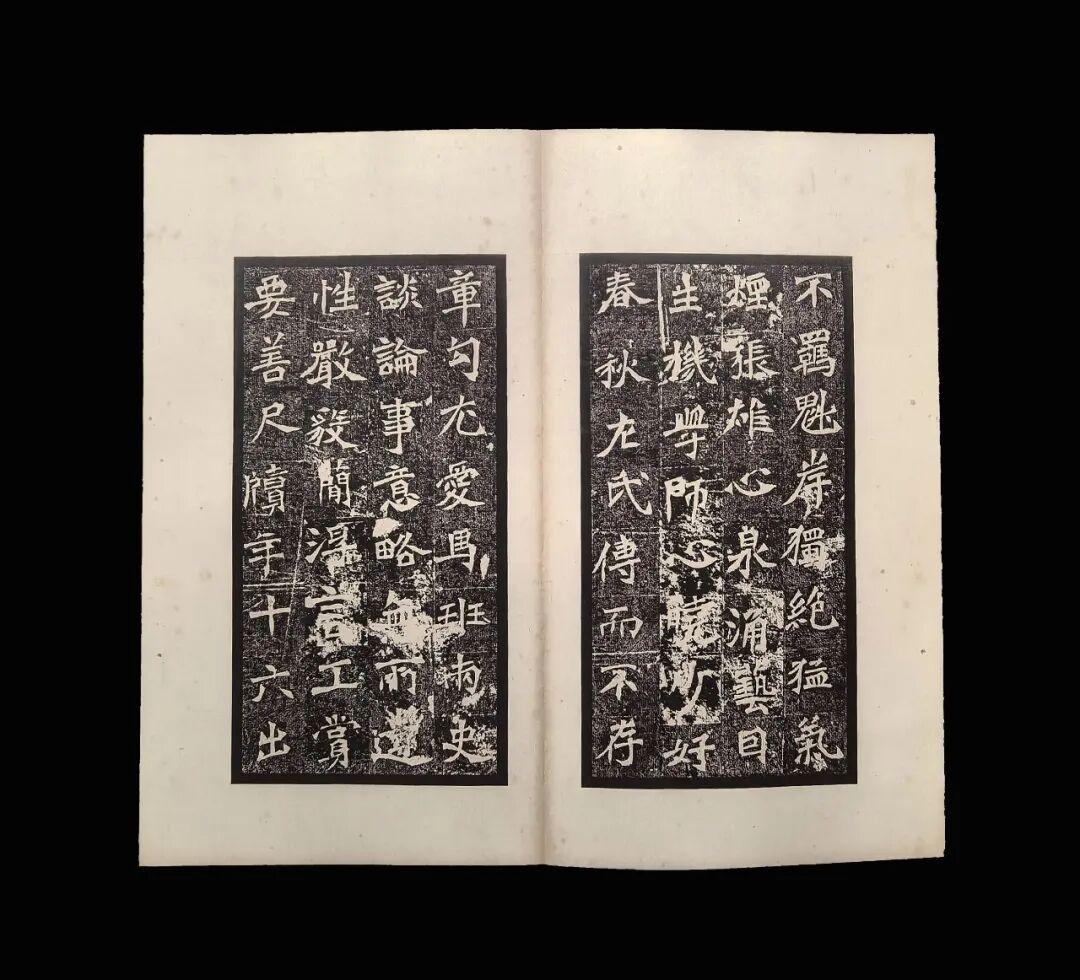 不羈魁岸獨絶猛氣
煙張雄心泉涌藝因
生機學師心曉少好
春秋左氏傳而不存
章勾尤愛馬班兩史
談論事意略無所遺
性嚴毅簡言工賞
要善尺牘年十六出